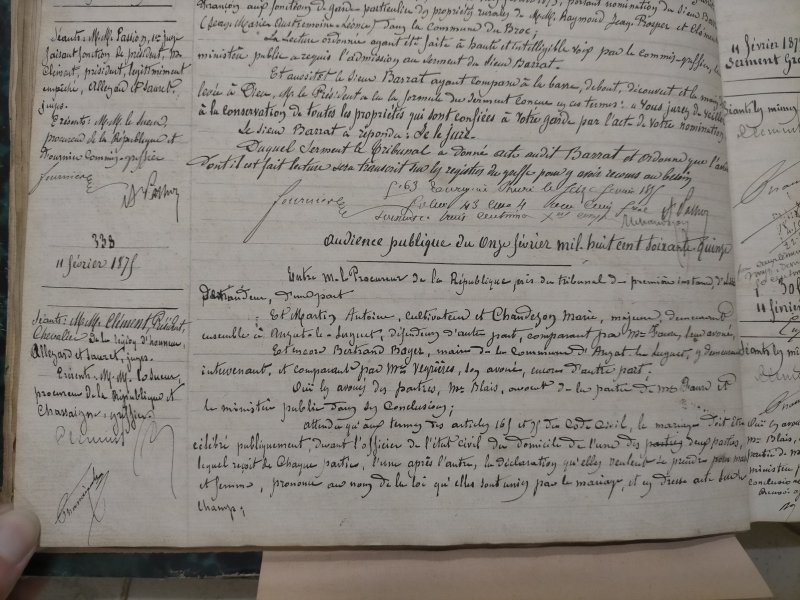 Séants: M.M. Passion, 1er juge
faisant fonction de président, Mr
Clément, président, légitimement
empêché, Alleyard et Sauret,
juges.
Présents: M.M. Le Sueur
procureur de la République et
Fournier Commis-greffier
fournier
338
11 février 1875
Séants: M.M. Clément, Président,
Chevalier de la légion d'honneur,
Alleyard et Sauret, juges.
Présents: M.M. Le Sueur,
procureur de la République et
Chassaigne, greffier.
françois aux fonctions de garde particulier des propriétés rurales de M.M. Raymond Jean Prosper et Clément
dans la commune du Broc;
La lecture ordonnée ayant été faite à haute et intelligible voix par le commis-greffier, le
ministère public a requis l'admission au serment du sieur Barrat.
Et aussitôt le sieur Barrat ayant comparu à la barre, debout, découvert et la main
levée à Dieu, Mr le Président a lu la formule du serment conçue en ces termes: "Vous jurez de veiller
à la conservation de toutes les propriétés qui sont confiées à votre garde par l'acte de votre nomination
Le sieur Barrat a répondu: Je le jure.
Duquel serment le tribunal a donné acte audit Barrat et ordonne que l'acte
dont il est fait lecture sera transcrit sur les registres du greffe pour y avoir recours au besoin
fournier
Audience publique du onze février mil huit cent soixante quinze
Entre M. le Procureur de la République près du tribunal de première instance d'
Demandeur, d'une part
Et Martin Antoine, cultivateur et Chandezon Marie, majeure, demeurant
ensemble à Anzat-le-Luguet, défendeurs d'autre part, comparant par Me Faure, leur avoué,
Et encore Bertrand Boyer, maire de la commune d'Anzat le Luguet, y demeurant
intervenant, et comparant par Me Veyrières, son avoué, encore d'autre part.
Ouï les avoués des parties, Me Blais, avocat de la partie de Me Faure et
le ministère public dans ses conclusions;
Attendu qu'aux termes des articles 165 et 75 du Code Civil, le mariage doit être
célébré publiquement, devant l'officier de l'état civil du domicile de l'une des parties deux parties,
lequel reçoit de chaque partie, l'une après l'autre, la déclaration qu'elles veulent se prendre pour mari
et femme, prononce au nom de la loi qu'elles sont unies par le mariage, et en dresse acte sur le
champ;
11 février 187
Serment
Séants les mêmes
11 février
Séants les mêmes
Ouï les avoués
Me Blais,
partie de
ministère
conclusions